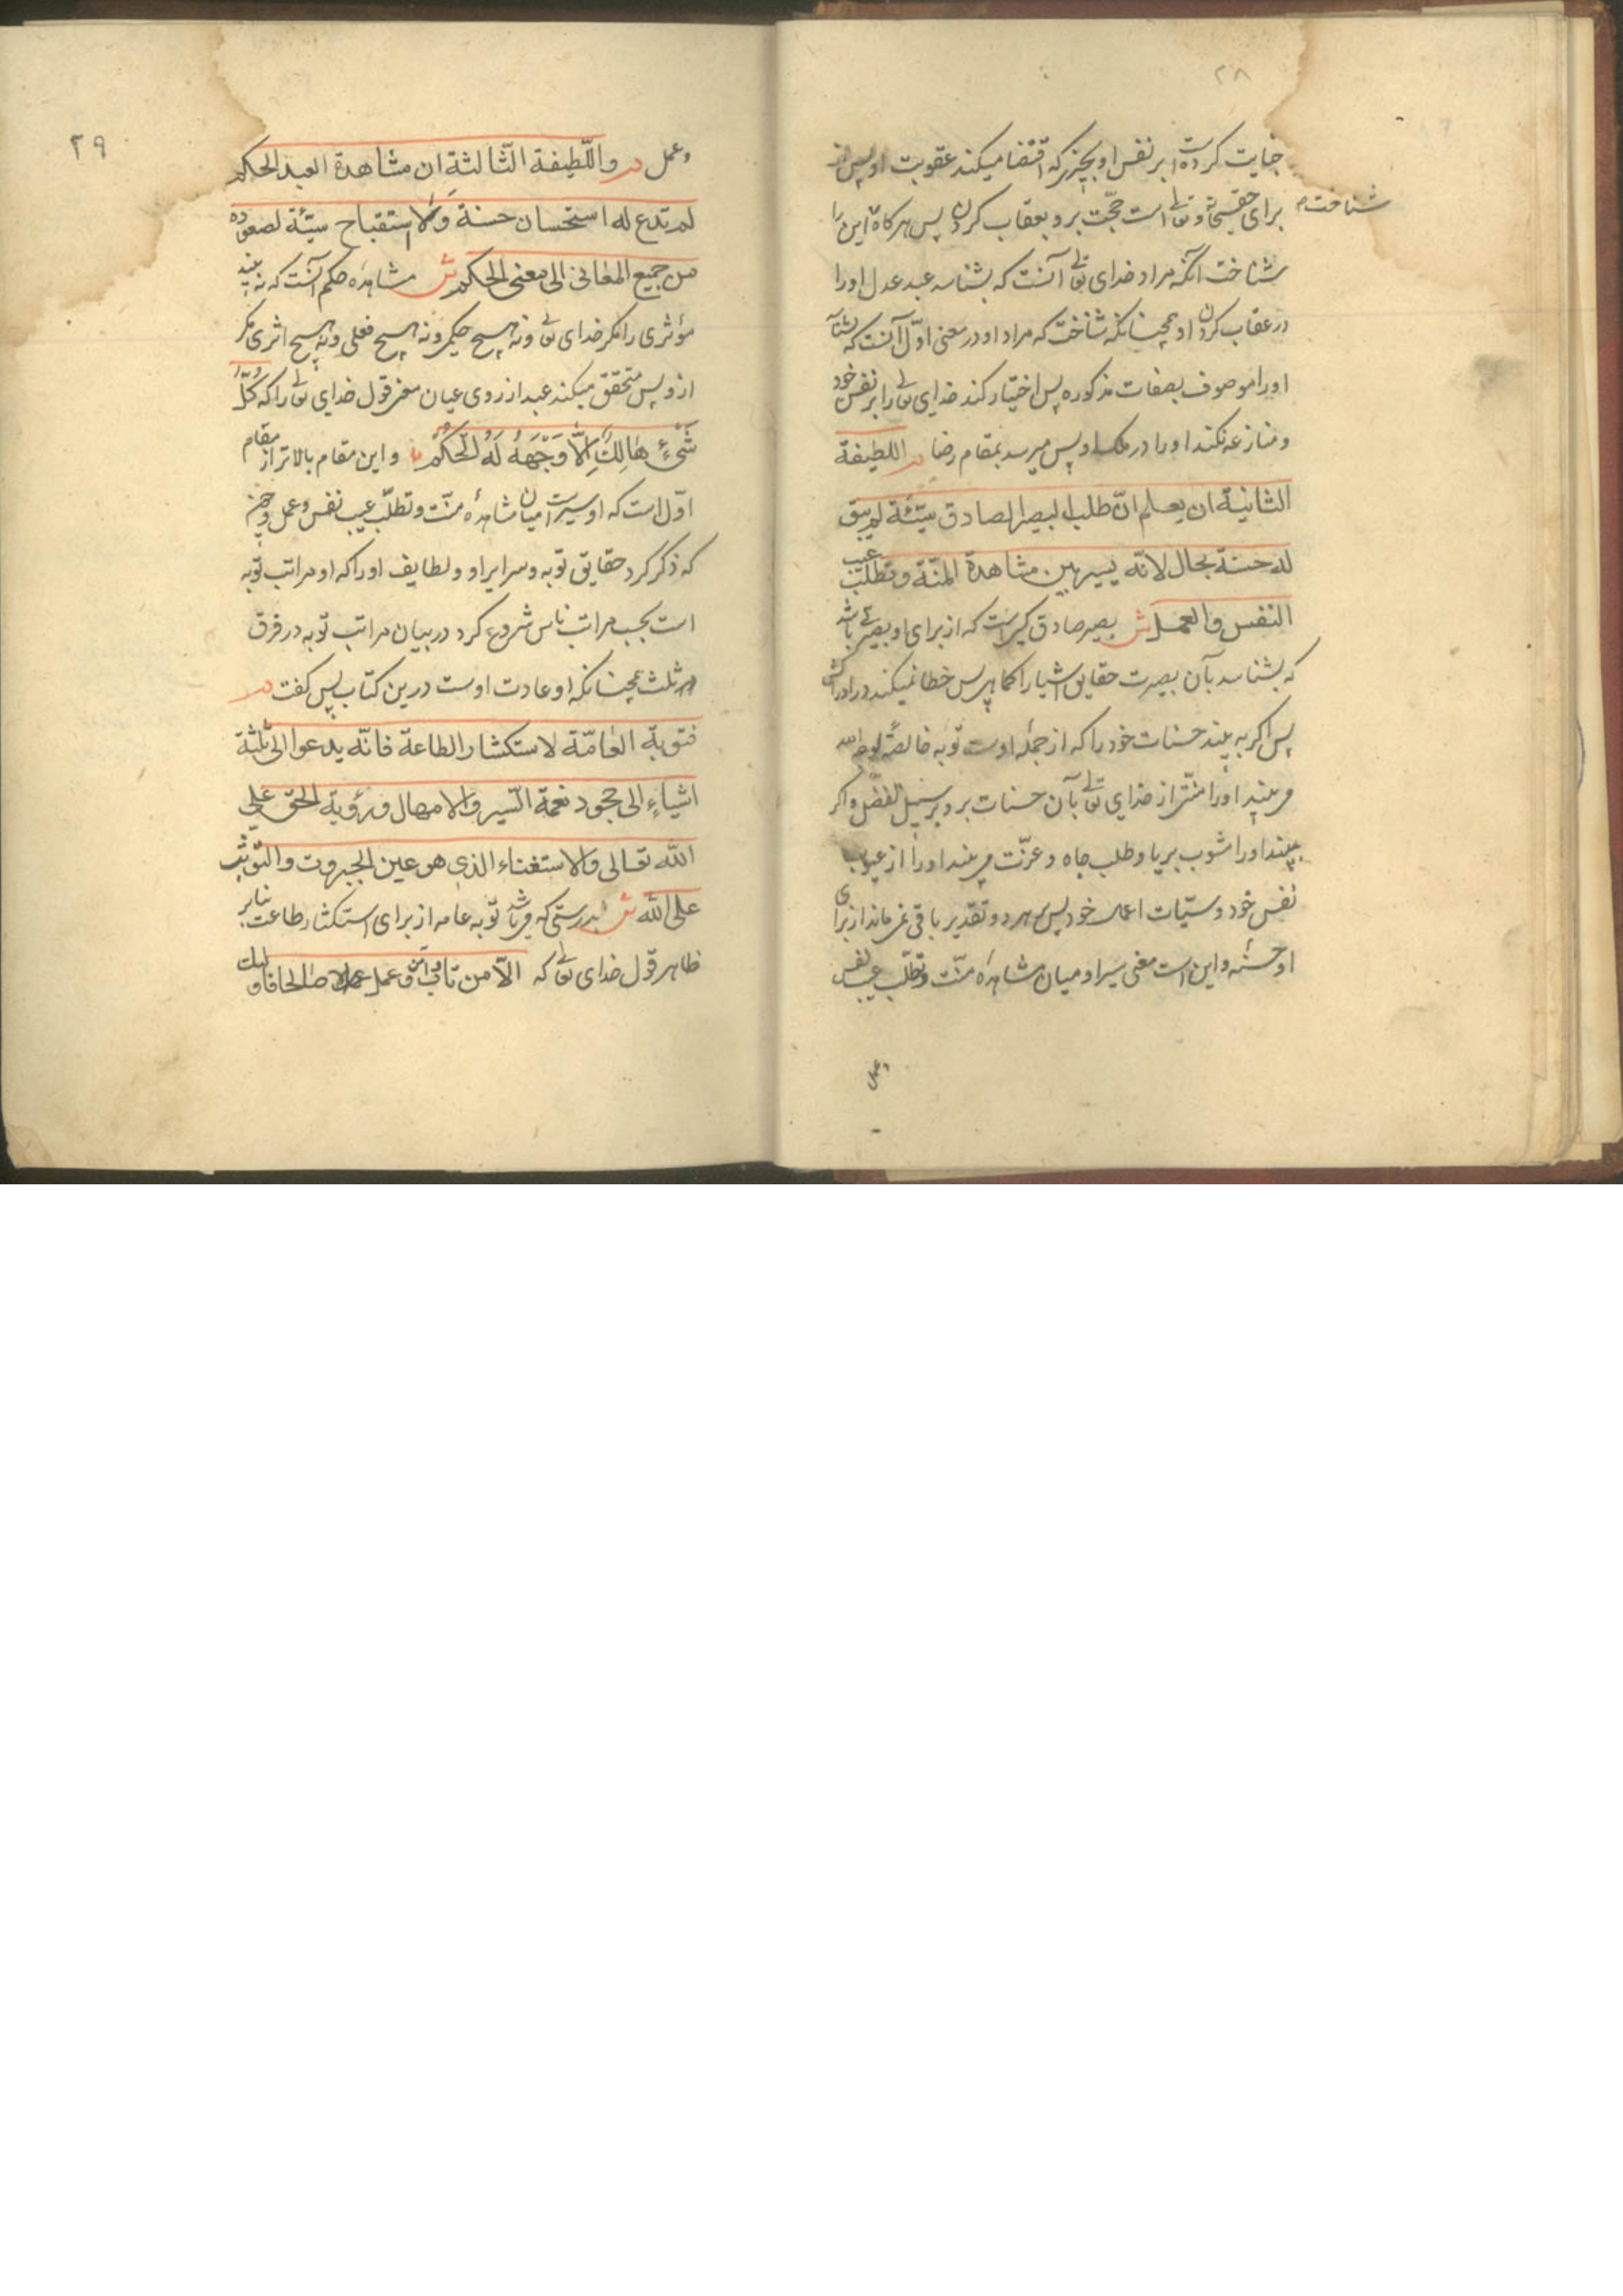 ۲۸
جنایت کرده است بر نفس او بچیزی که اقتضا میکند عقوبت او پس از
شناخت
برای حقسبحانه و تعالی است حجّت برو بعقاب کردن پس هرکاه این را
شناخت آنکه مراد خدای تعالی آنست که بشناسد عبد عدل او را
در عقاب کردن او همچنانکه شناخت که مراد او در معنی اوّل آنست که بشناسد
او را موصوف بصفات مذکوره پس اختیار کند خدای تعالی را بر نفس خود
و منازعه نکند او را در ملک او پس میرسد بمقام رضا م اللطیفة
الثانیة ان یعلم انّ طلب البصیر الصادق سیّئة لم یبق
له حسنة بحال لانّه یسیر بین مشاهدة المنّة و تطلّب عیب
النفس والعمل ش بصیر صادق کسیست که از برای او بصیرتی باشد
که بشناسد بآن بصیرت حقایق اشیا را کما هی پس خطا نمیکند در ادراکش
پس اکر به بیند حسنات خود را که از جملهٔ اوست توبه خالصة لوجه الله
می بیند او را منّتی از خدای تعالی بآن حسنات برو بر سبیل تفضّل و اکر
بیند او را مشوب بریا و طلب جاه و عزّت می بیند او را از عیوب
نفس خود و سیّئات اعمال خود پس بهر دو تقدیر باقی نمی ماند از برای
او حسنه و این است معنی سیر او میان مشاهده منّت و تطلّب عیب نفس
وعمل
۲۹
وعمل م واللّطیفة الثّالثة ان مشاهدة العبد الحکم
لم تدع له استحسان حسنة ولا استقباح سیّئة لصعوده
من جمیع المعانی الی معنی الحکم ش مشاهده حکم آنست که نه بیند
مؤثری را مکر خدای تعالی و نه هیچ حکمی و نه هیچ فعلی و نه هیچ اثری مکر
ازو پس متحقق میکند عبد از روی عیان معنی قول خدای تعالی را که کُلُّ
شَیْءٍ هَالِكٌ اِلّا وَجْهَهُ لَهُ الْحُکْمُ و این مقام بالاتر از مقام
اوّل است که او سیرست میان مشاهدهٔ منّت و تطلّب عیب نفس و عمل و چون
که ذکر کرد حقایق توبه و سرایر او و لطایف او را که او مراتب توبه
است بحسب مراتب ناس شروع کرد در بیان مراتب توبه در فرق
ثلث همچنانکه او عادت اوست درین کتاب پس کفت م
فتوبة العامّة لاستکثار الطاعة فانّه یدعوا الی ثلثة
اشیاءٍ الی جحود نعمة السّتر والامهال و رؤیة الحق علی
الله تعالی والاستغناء الذی هو عین الجبروت والتوثّب
علی الله ش بدرستی که می باشد توبه عامه از برای استکثار طاعت بنابر
ظاهر قول خدای تعالی که الّا من تاب وآمن و عمل عملا صالحا فاولئك